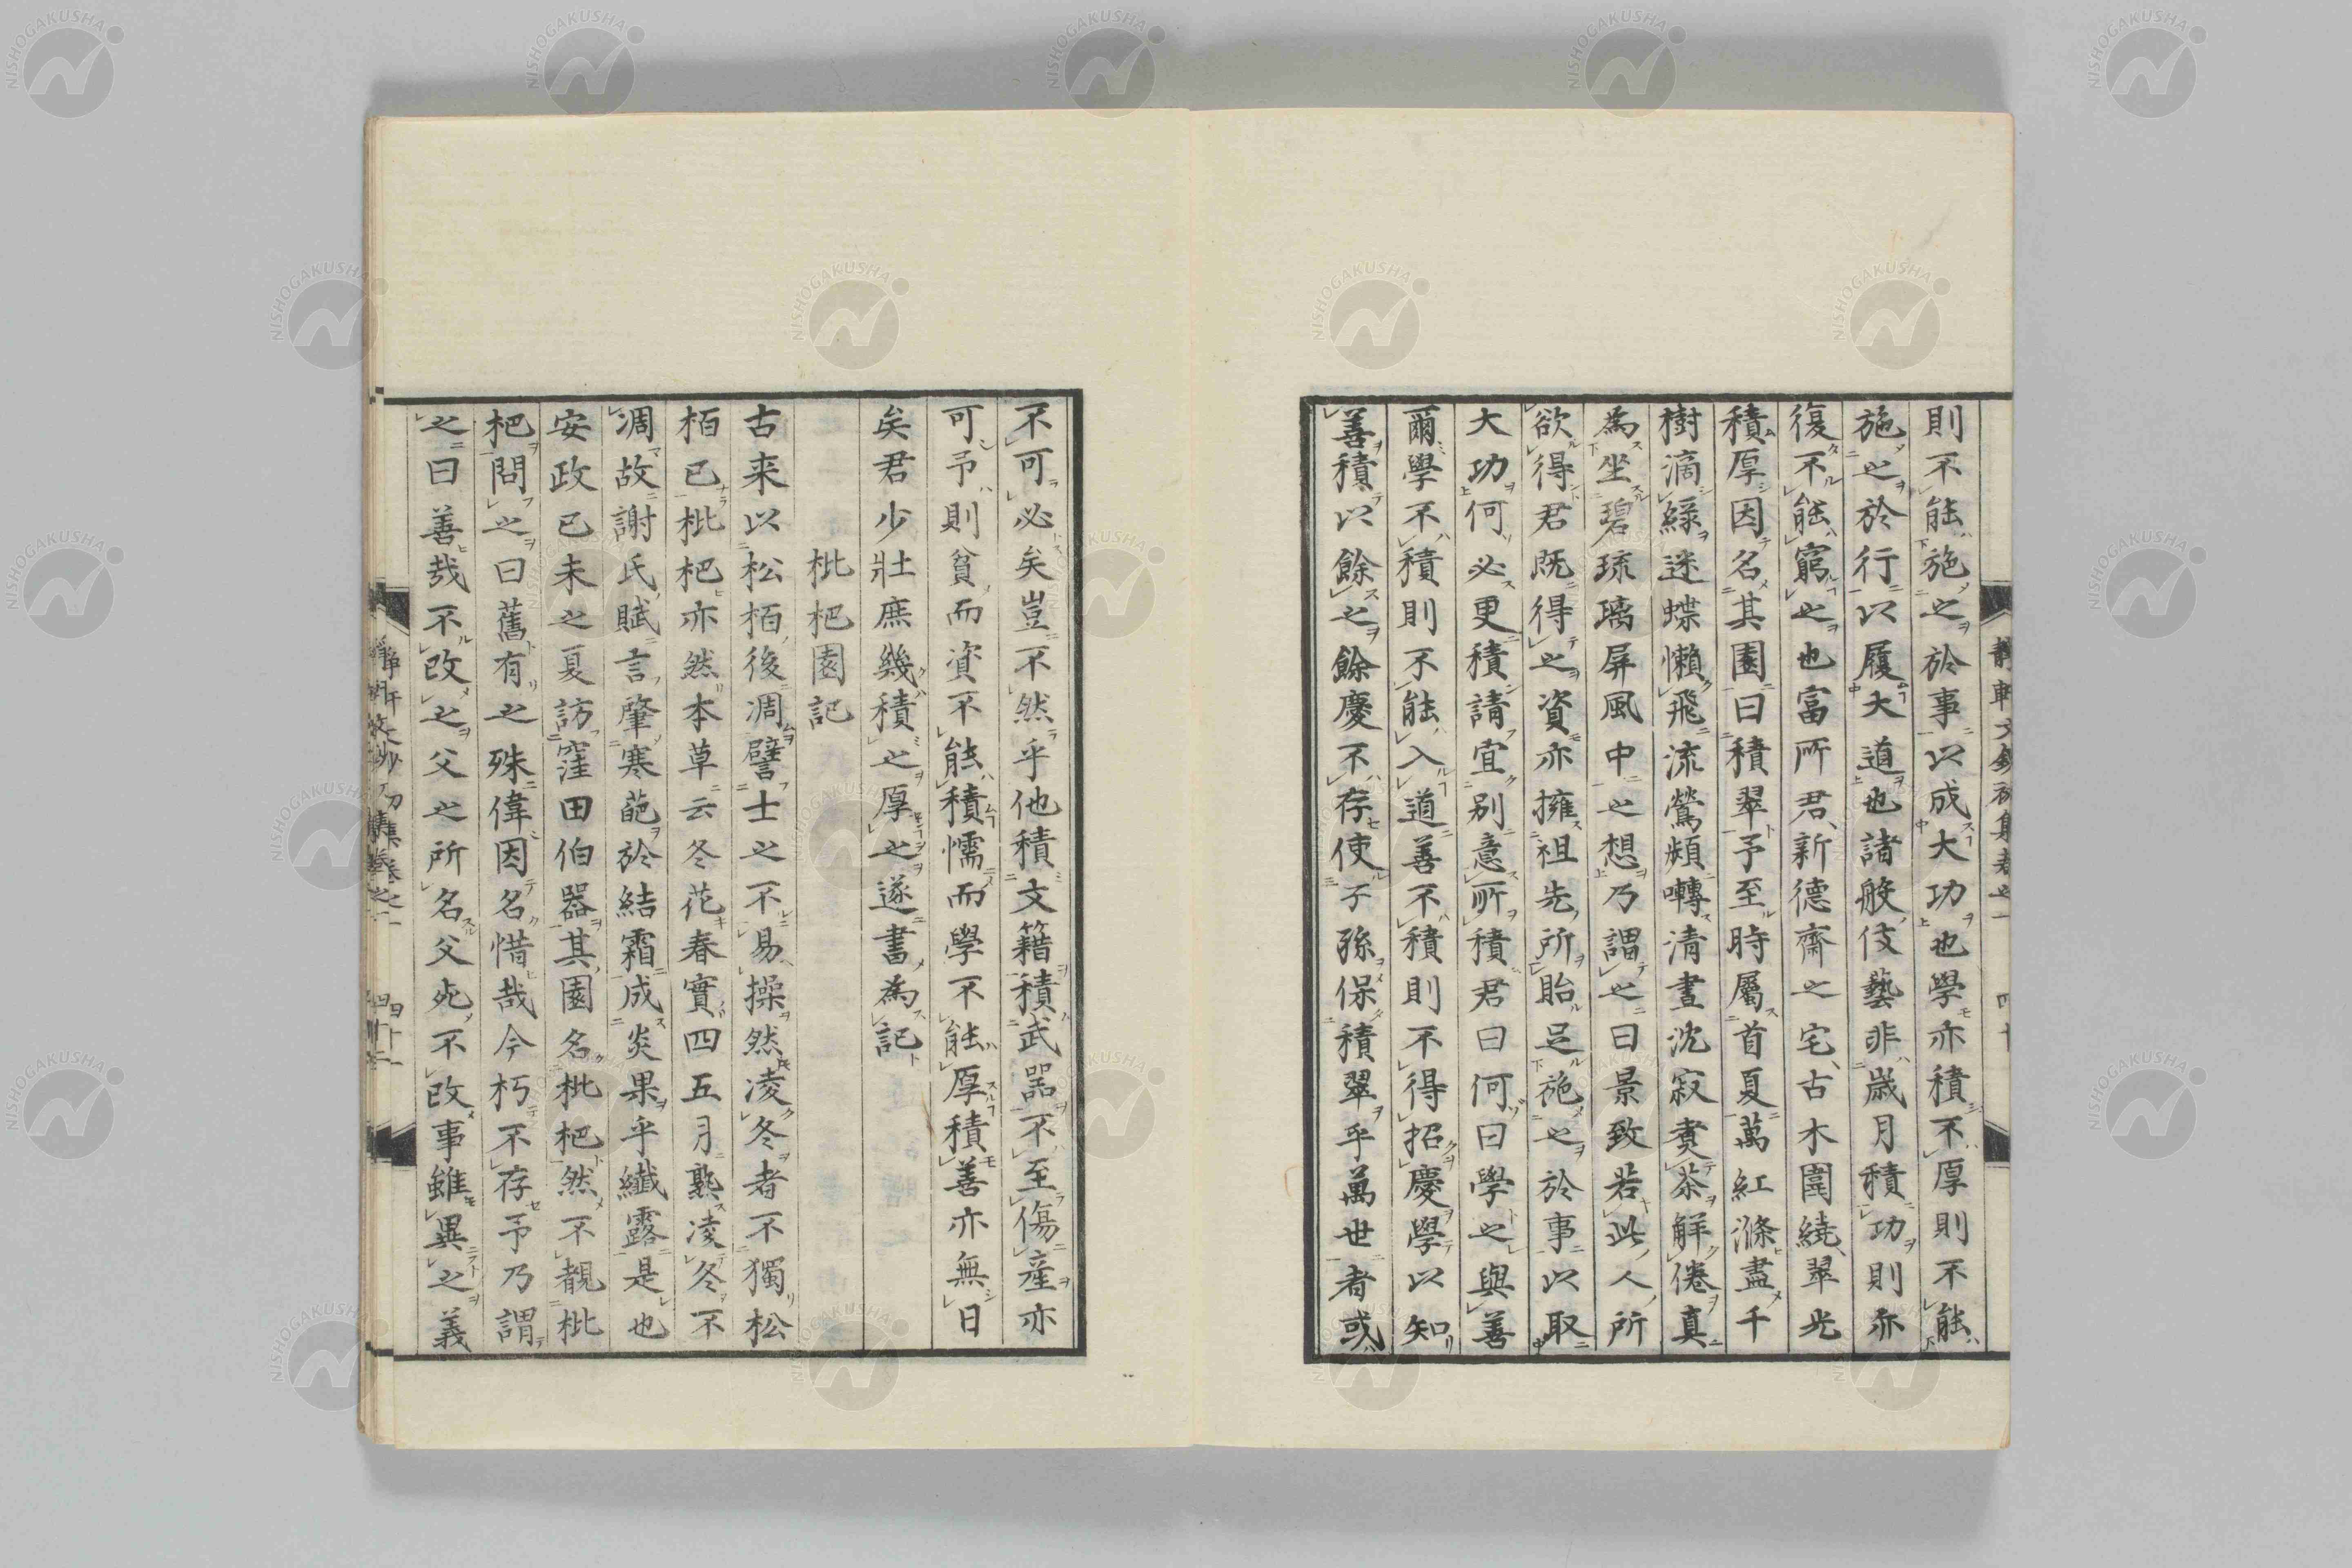 則不能施之於事以成大功也學亦積不厚則不能
施之於行以履大道也諸般伎藝非歳月積功則亦
復不能窮之也冨所君新德齋之宅古木圍繞翠光
積厚因名其園曰積翠予至時屬首夏萬紅滌盡千
樹滴緑迷蝶懶飛流鶯頻囀清晝沈寂煮茶解倦真
為坐碧琉璃屏風中之想乃謂之曰景致若此人所
欲得君既得之資亦擁祖先所貽足施之於事以取
大功何必更積請宜別意所積君曰何曰學之與善
爾學不積則不能入道善不積則不得招慶學以知
善積以餘之餘慶不存使子孫保積翠乎萬世者或
不可可必矣豈不然乎他積文籍積武器不至傷産亦
可予則貧而資不能積懦而學不能厚積善亦無日
矣君少壯庶幾積之厚之遂書為記
枇杷園記
古来以松栢後凋譬士之不易操然凌冬者不獨松
栢已枇杷亦然本草云冬花春實四五月熟凌冬不
凋故謝氏賦言肇寒葩於結霜成炎果乎纖露是也
安政己未之夏訪窪田伯器其園名枇杷然不覩枇
杷問之曰舊有之殊偉因名惜哉今朽不存予乃謂
之曰善哉不改之父之所名父死不改事雖異之義